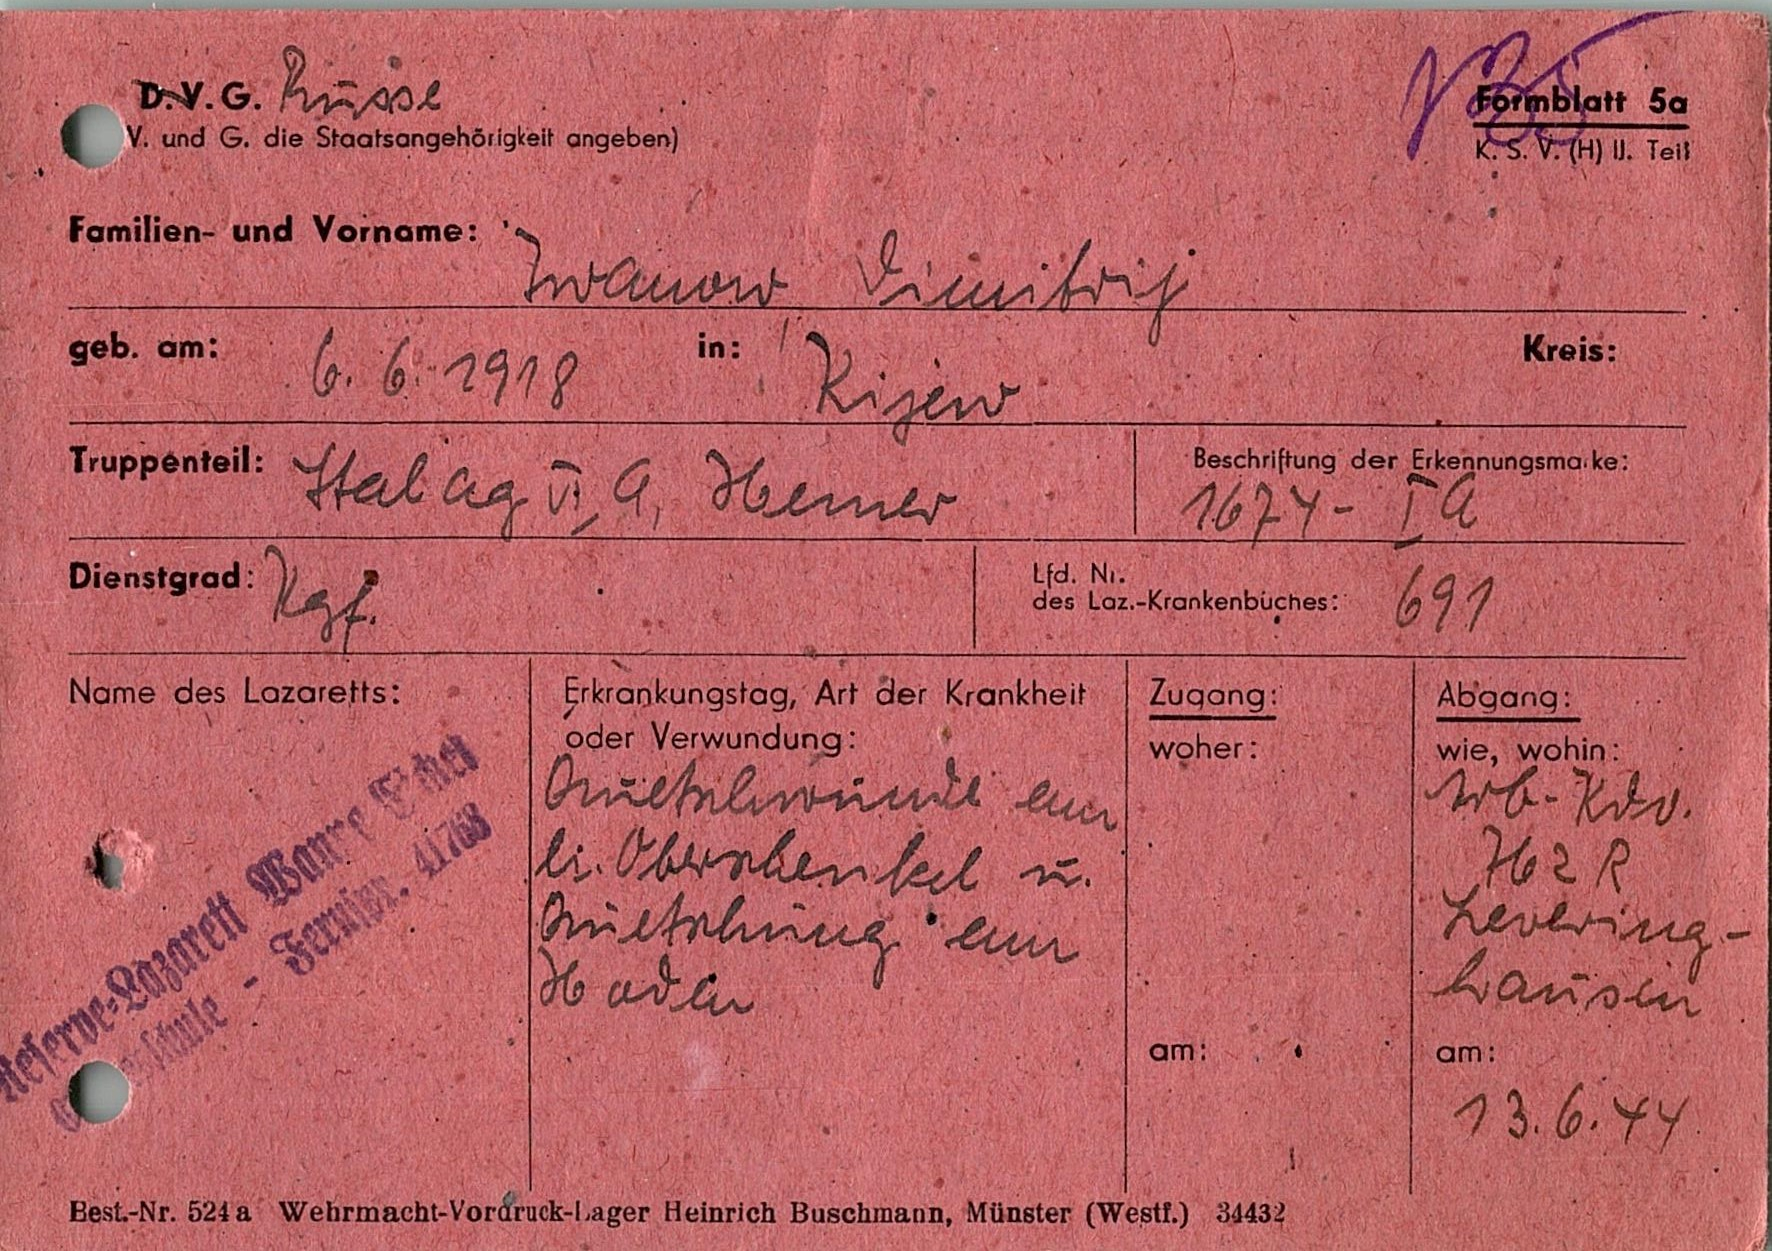 D.V.G. Russe
V. und G. die Staatsangehörigkeit angeben)
Formblatt 5a
K. S. V. (H) II. Teil
Familien- und Vorname: Iwanow Dimitrij
geb. am: 6. 6. 1918 in: Kijew Kreis:
Truppenteil: Stalag VI A, Hemer
Beschriftung der Erkennungsmarke:
1674 - I A
Dienstgrad: Kgf.
Lfd. Nr.
des Laz.-Krankenbuches: 691
Name des Lazaretts:
Reserve-Lazarett Wanne Eickel
- Fernspr. 41768
Erkrankungstag, Art der Krankheit
oder Verwundung:
Quetschwunde am
li. Oberschenkel u.
Quetschung am
Hoden
Zugang:
woher:
am:
Abgang:
wie, wohin:
Arb-Kdo.
762 R
Levering-
hausen
am:
13. 6. 44
Best.-Nr. 524 a Wehrmacht-Vordruck-Lager Heinrich Buschmann, Münster (Westf.) 34432